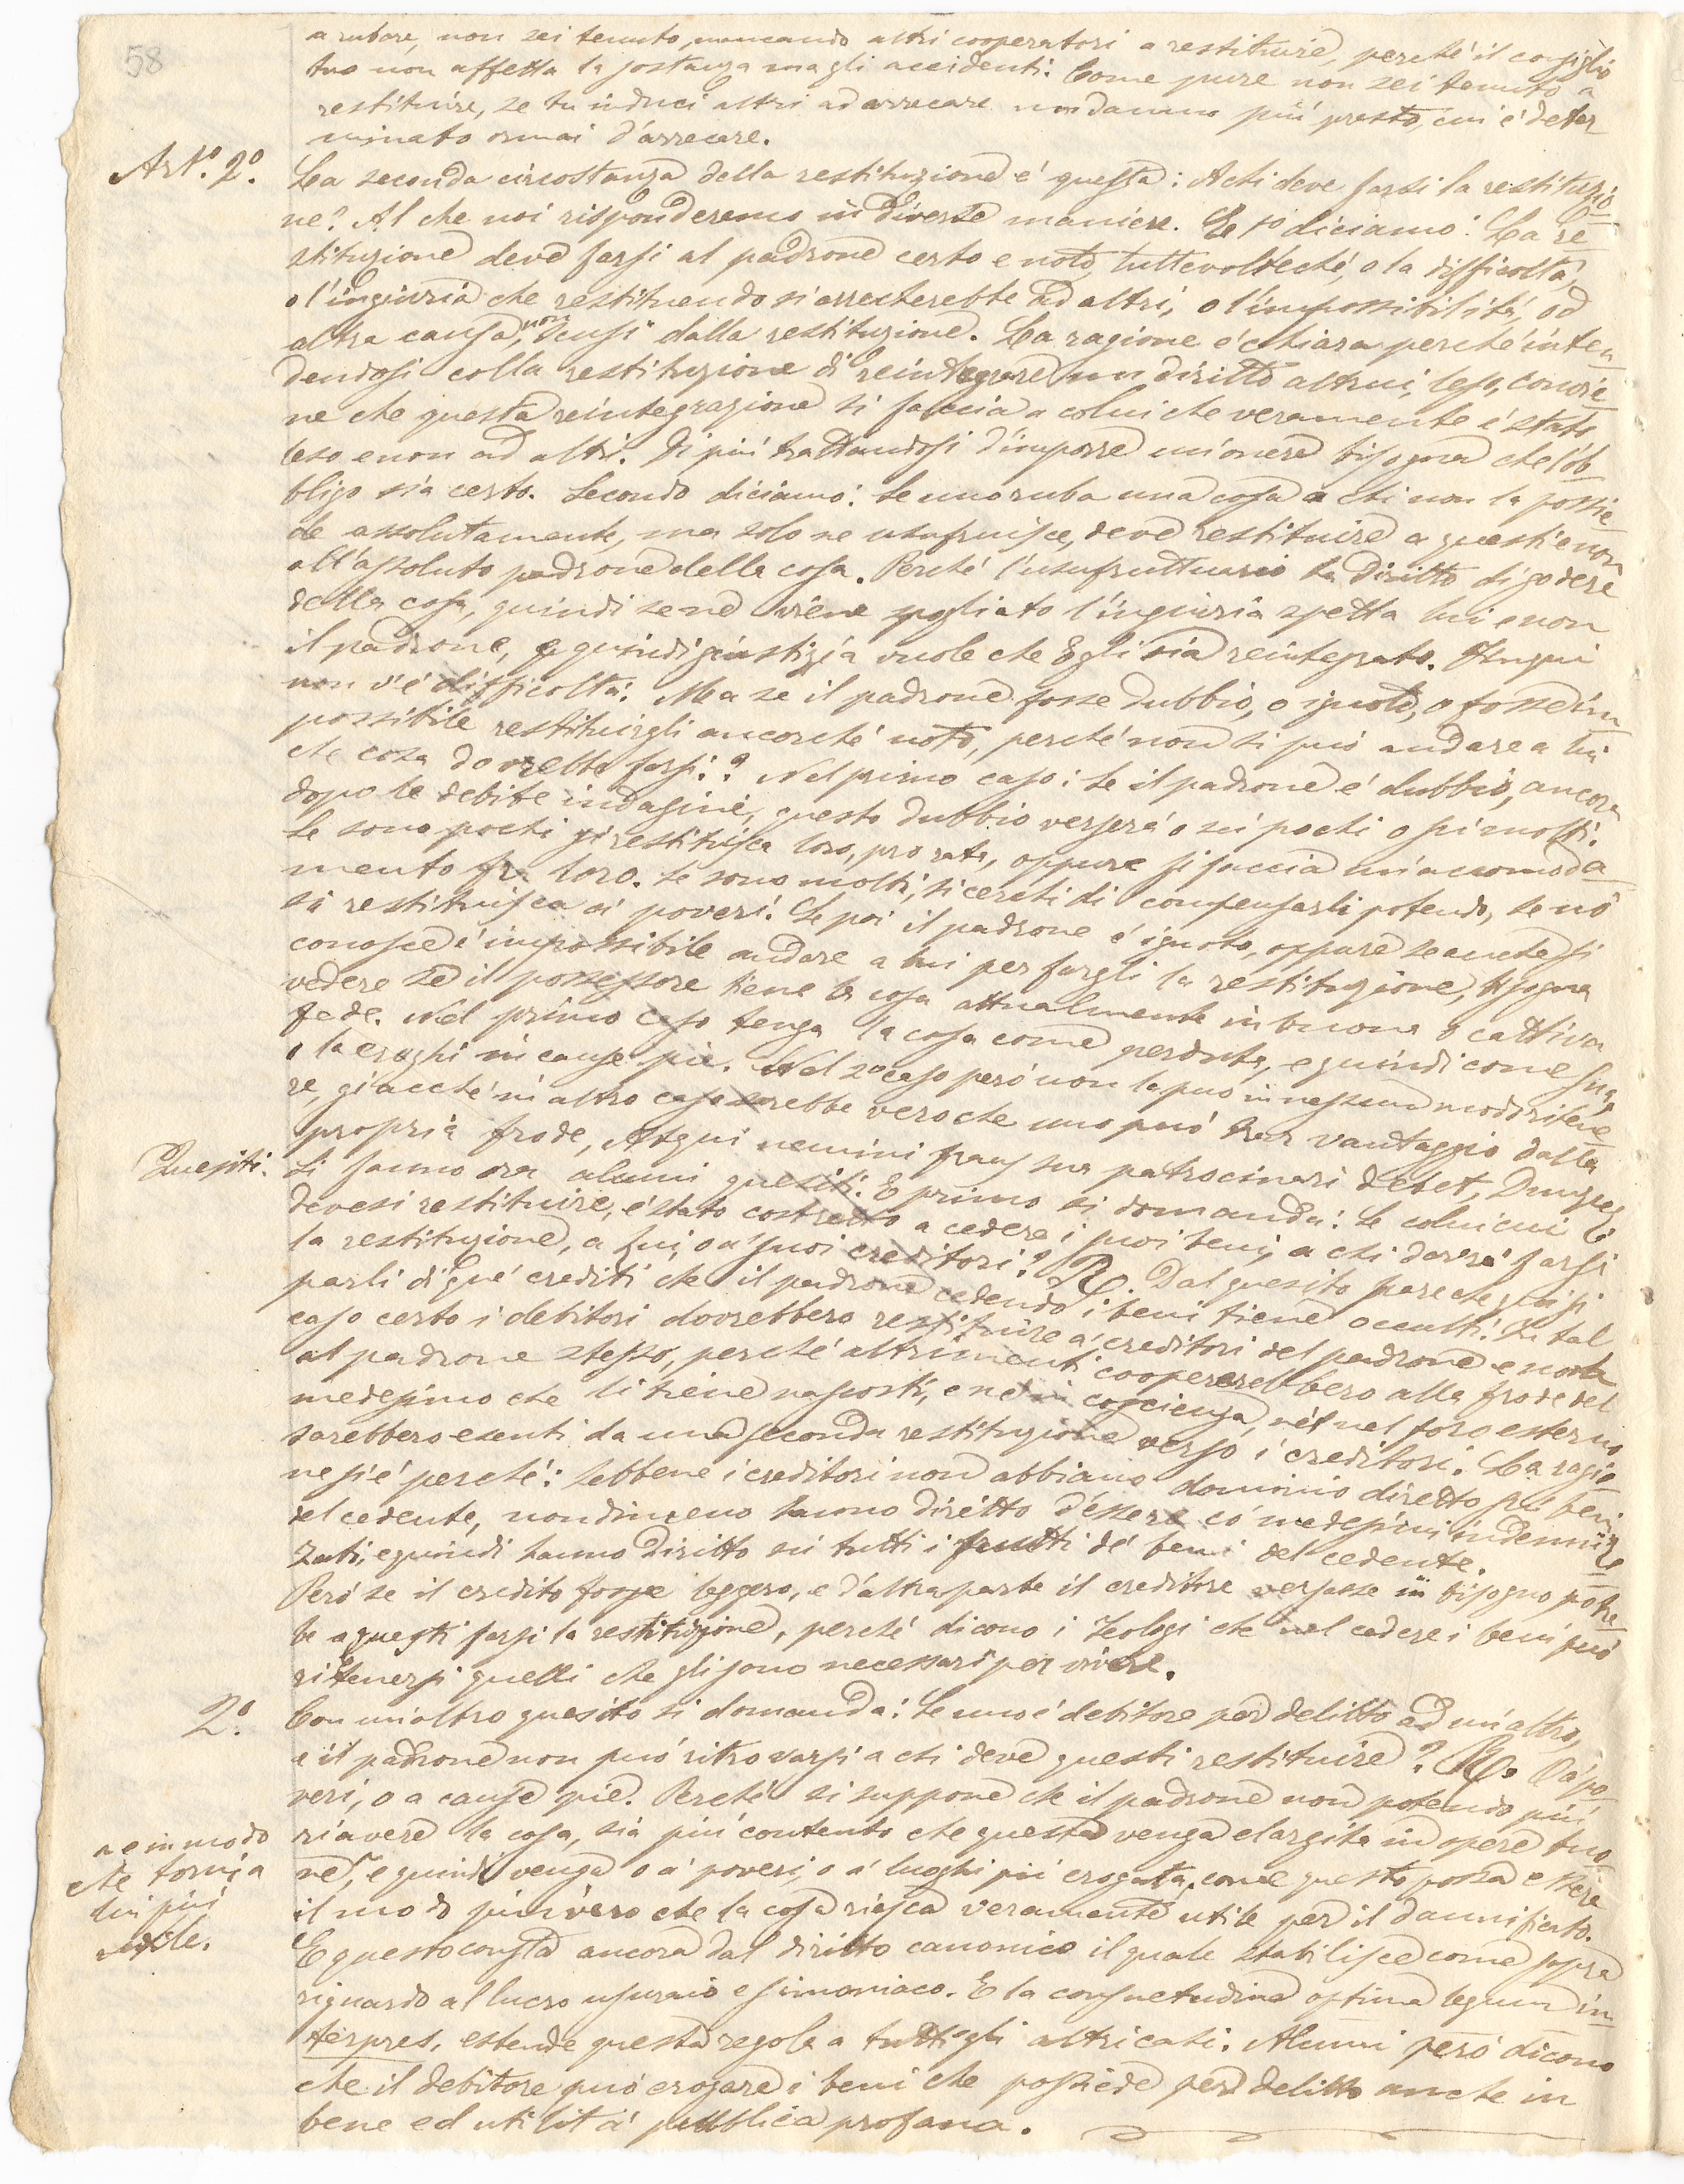 58
a rubare, non sei tenuto, mancando altri cooperatori a restituire, perché il consiglio
tuo non affetta la sostanza ma gli accidenti. Come pure non sei tenuto a
restituire, se tu induci altri ad arrecare un danno più presto, cui è deter
minato ormai d'arrecare.
Art.o 2o. La seconda circostanza della restituzione é questa: A chi deve farsi la restituzio
ne? Al che noi risponderemo in diverse maniere. E 1o diciamo: La re
stituzione deve farsi al padrone certo e noto, tuttevolteché, o la difficoltà,
o l'ingiuria che restituendo si arrecherebbe ad altri, o l'impossibilità, od
altra causa, non scusi dalla restituzione. La ragione é chiara perché inten
dendosi colla restituzione di reintegrare un diritto altrui, leso, convie
ne che questa reintegrazione si faccia a colui che veramente é stato
leso e non ad altri. Di più trattandosi d'imporre un'onere bisogna che l'ob
bligo sia certo. Secondo diciamo: Se uno ruba una cosa a chi non la possie
de assolutamente, ma solo ne usufruisce, deve restituire a questi e non
all'assoluto padrone della cosa. Perché l'usufruttuario ha diritto di godere
della cosa, quindi se ne viene spogliato l'ingiuria spetta lui e non
il padrone, e quindi giustizia vuole che Egli sia reintegrato. Fin qui
non v'é difficoltà. Ma se il padrone fosse dubbio, o ignoto, o fosse im
possibile restituirgli ancorché noto, perché non si può andare a lui
che cosa dovrebbe farsi? Nel primo caso: Se il padrone é dubbio, ancora
dopo le debite indagini, questo dubbio verserà o sui pochi o sui molti.
Se sono pochi si restituisca loro, pro rata, oppure si faccia un'accomoda
mento fra loro. Se sono molti, si cerchi di compensarli potendo, se nò
si restituisca ai poveri. Se poi il padrone é ignoto, oppure se anche si
conosce é impossibile andare a lui per fargli la restituzione, bisogna
vedere se il possessore tiene la cosa attualmente in buona o cattiva
fede. Nel primo caso tenga la cosa come perduta, e quindi come sua,
o la eroghi in cause pie. Nel 2o caso però non la può in nessun modo ritene
re, giacché in altro caso sarebbe vero che uno può trar vantaggio dalla
propria frode, Atqui nemini fraus sua patrocinari debet, Dunque &
Quesiti. Si fanno ora alcuni quesiti. E primo si domanda: Se colui cui
devesi restituire, é stato costretto a cedere i suoi beni, a chi dovrà farsi
la restituzione, a lui, o a' suoi creditori? R. Dal quesito pare che qui si
parli di que' crediti che il padrone cedendo i beni tiene occulti. In tal
caso certo i debitori dovrebbero restituire a' creditori del padrone e non
al padrone stesso, perché altrimenti coopererebbero alla frode del
medesimo che li tiene nascosti, e ne in coscienza, né nel foro esterno
sarebbero esenti da una seconda restituzione verso i creditori. La ragio
ne si é perché: sebbene i creditori non abbiano dominio diretto sui beni
del cedente, nondimeno hanno diritto d'essere co' medesimi indenniz
zati, e quindi hanno diritto su tutti i frutti de' beni del cedente.
Però se il credito fosse leggero, e d'altra parte il creditore versasse in bisogno potreb
be a questi farsi la restituzione, perché dicono i Teologi che nel cedere i beni può
ritenersi quelli che gli sono necessari per vivere.
2o. Con un'altro quesito si domanda: Se uno é debitore per delitto ad un'altro,
e il padrone non può ritrovarsi a chi deve questi restituire? R. Ai po
veri, o a cause pie. Perché si suppone che il padrone non potendo più
riavere la cosa, sia più contento che questa venga elargita in opere buo
ne, e quindi venga o a' poveri, o a' luoghi pii erogata, come questo possa essere
il modo più vero che la cosa riesca veramente utile per il dannificato.
ne in modo
che torni a
lui più
utile.
E questo consta ancora dal diritto canonico il quale stabilisce come sopra
riguardo al lucro usuraio e simoniaco. E la consuetudine optima legum in
terpres, estende questa regola a tutti gli altri casi. Alcuni però dicono
che il debitore può erogare i beni che possiede per delitto anche in
bene ed utilità pubblica profana.